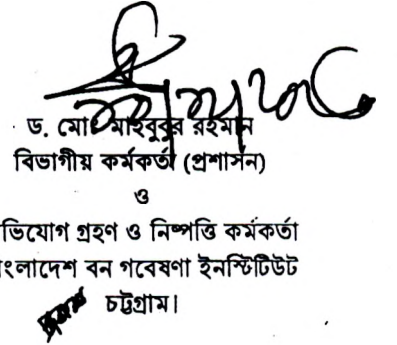 ড. মোঃ মাহবুবুর রহমান
বিভাগীয় কর্মকর্তা (প্রশাসন)
ও
ভিযোগ গ্রহণ ও নিষ্পত্তি কর্মকর্তা
ংলাদেশ বন গবেষণা ইনস্টিটিউট
চট্টগ্রাম।